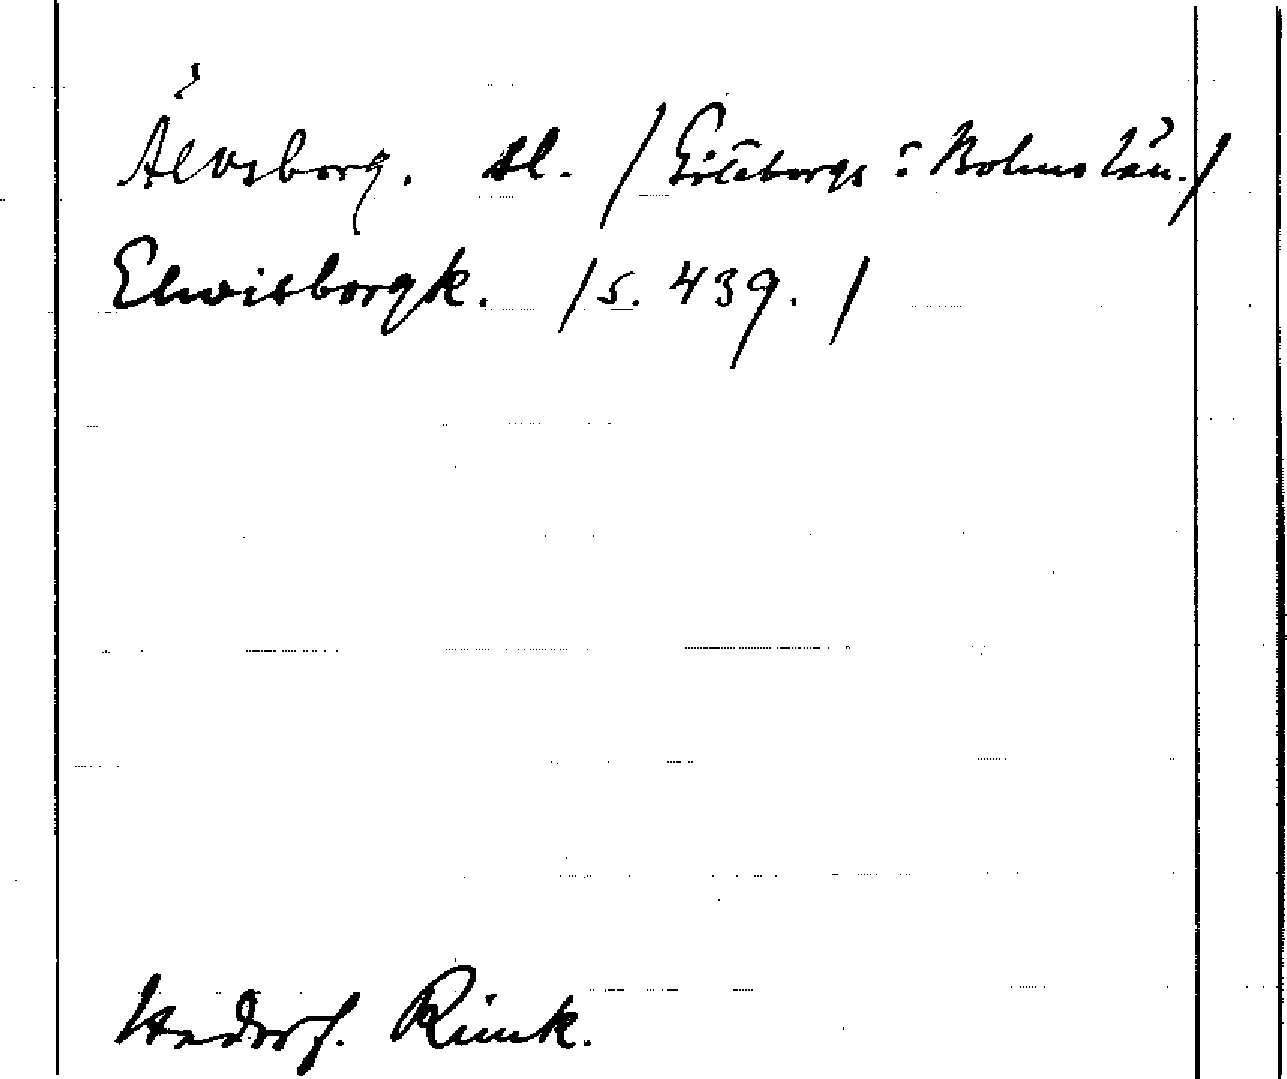 Älvsborg. sl. /Göteborgs o Bohus län./
Elwisborgk. /s. 439./
Rimk.